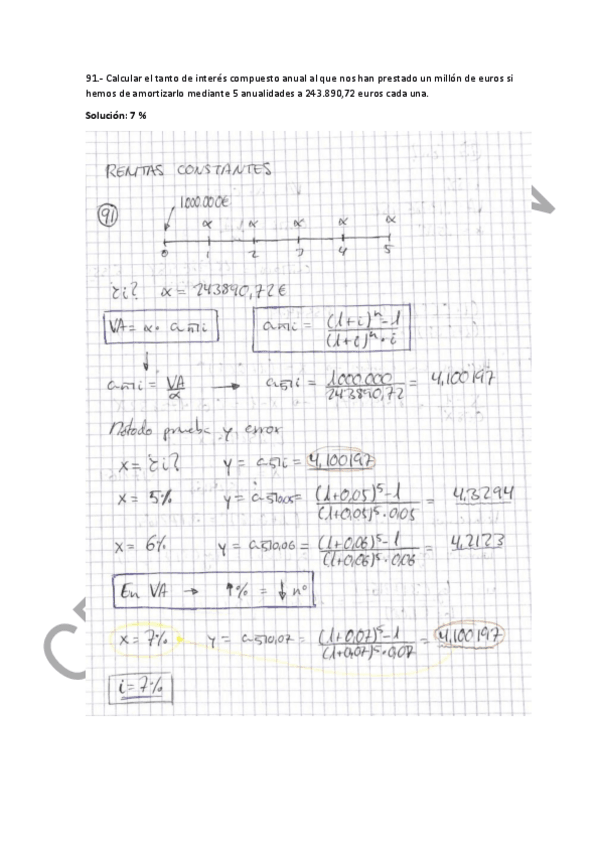 91.- Calcular el tanto de interés compuesto anual al que nos han prestado un millón de euros si
hemos de amortizarlo mediante 5 anualidades a 243.890,72 euros cada una.
Solución: 7 %
RENTAS CONSTANTES
1.000.000€
91
α α α α α
0 1 2 3 4 5
¿i? α = 243890,72€
VA = α · an̅i an̅i = (1+i)^n - 1 / (1+i)^n · i
an̅i = VA / α → a5̅i = 1000.000 / 243890,72 = 4,100197
Método prueba y error
x = ¿i? y = a5̅i = 4,100197
x = 5% y = a5̅0,05 = (1+0,05)^5 - 1 / (1+0,05)^5 · 0,05 = 4,3294
x = 6% y = a5̅0,06 = (1+0,06)^5 - 1 / (1+0,06)^5 · 0,06 = 4,2123
En VA → ↑% = ↓ nº
x = 7% y = a5̅0,07 = (1+0,07)^5 - 1 / (1+0,07)^5 · 0,07 = 4,100197
i = 7%